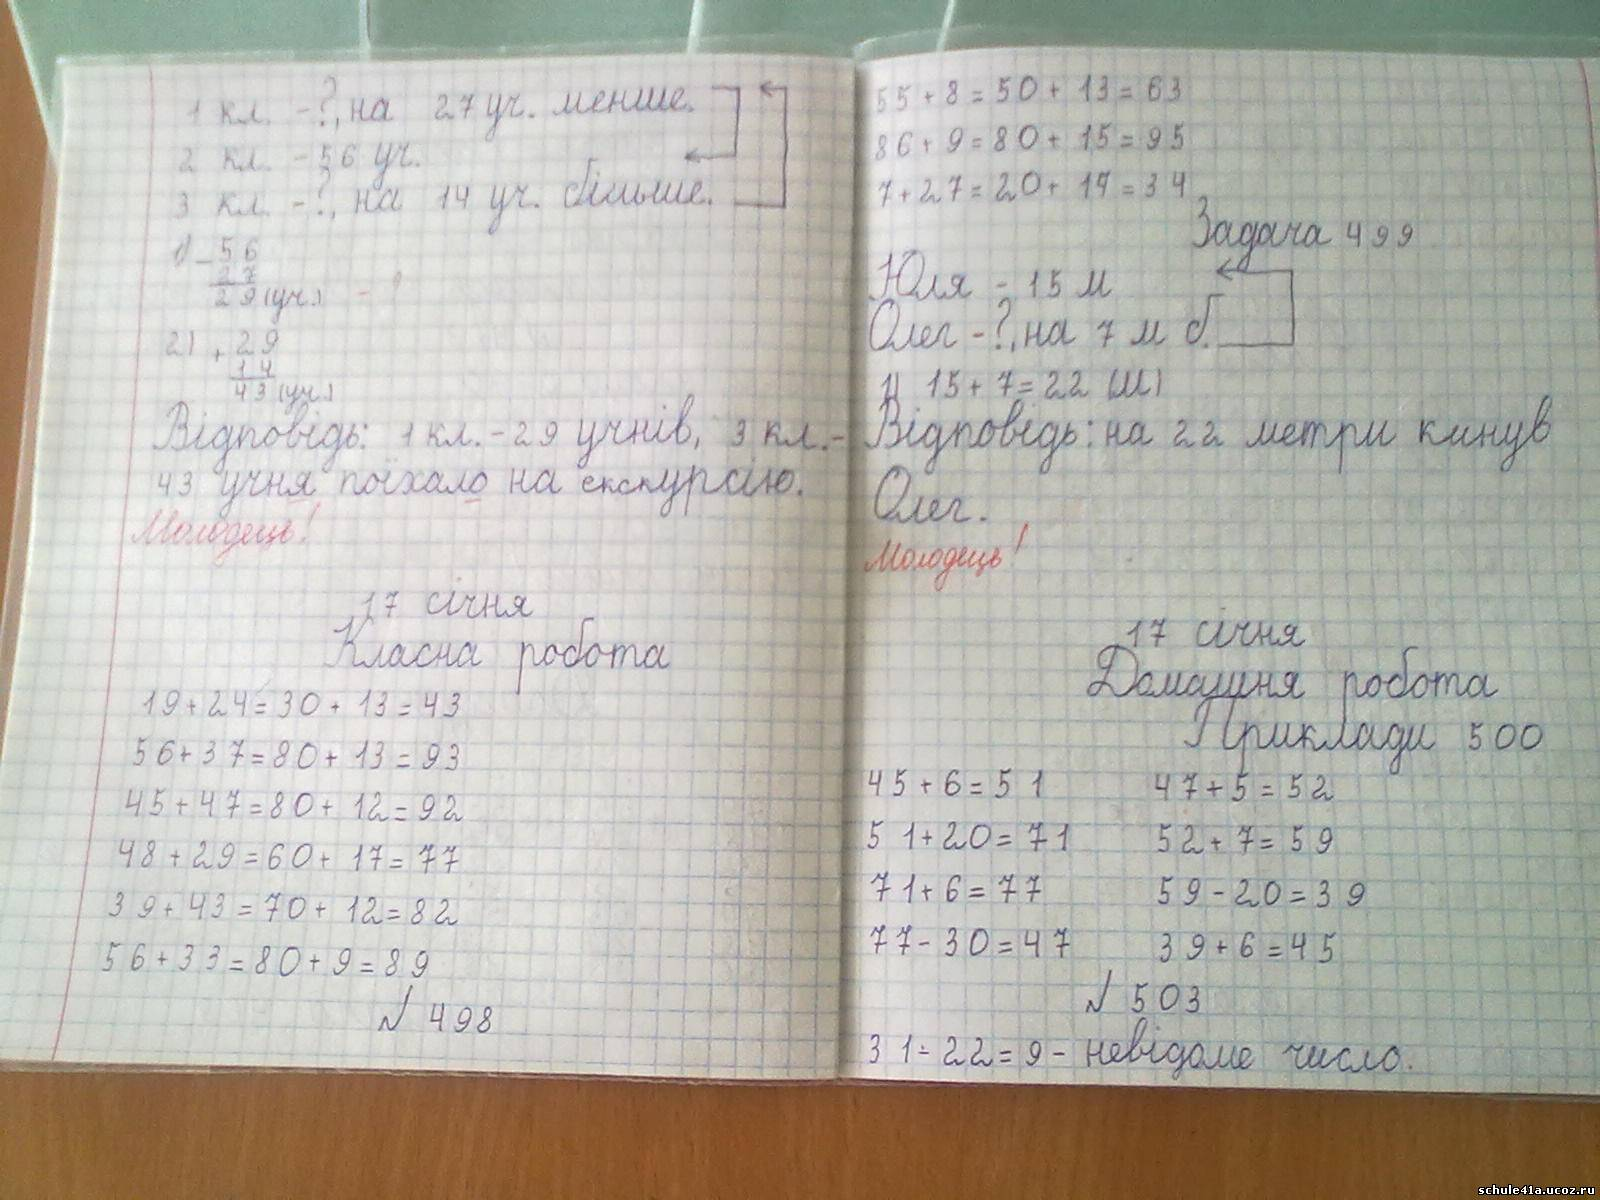 1 кл. - ?, на 27 уч. менше.
2 кл. - 56 уч.
3 кл. - ?, на 14 уч. більше.
1) - 56
27
29 (уч.)
2) + 29
14
43 (уч.)
Відповідь: 1 кл. - 29 учнів, 3 кл. -
43 учня поїхало на екскурсію.
Молодець!
17 січня
Класна робота
19 + 24 = 30 + 13 = 43
56 + 37 = 80 + 13 = 93
45 + 47 = 80 + 12 = 92
48 + 29 = 60 + 17 = 77
39 + 43 = 70 + 12 = 82
56 + 33 = 80 + 9 = 89
№ 498
55 + 8 = 50 + 13 = 63
86 + 9 = 80 + 15 = 95
7 + 27 = 20 + 14 = 34
Задача 499
Юля - 15 м
Олег - ?, на 7 м б.
1) 15 + 7 = 22 (м)
Відповідь: на 22 метри кинув
Олег.
Молодець!
17 січня
Домашня робота
Приклади 500
45 + 6 = 51 47 + 5 = 52
51 + 20 = 71 52 + 7 = 59
71 + 6 = 77 59 - 20 = 39
77 - 30 = 47 39 + 6 = 45
№ 503
31 - 22 = 9 - невідоме число.
schule41a.ucoz.ru